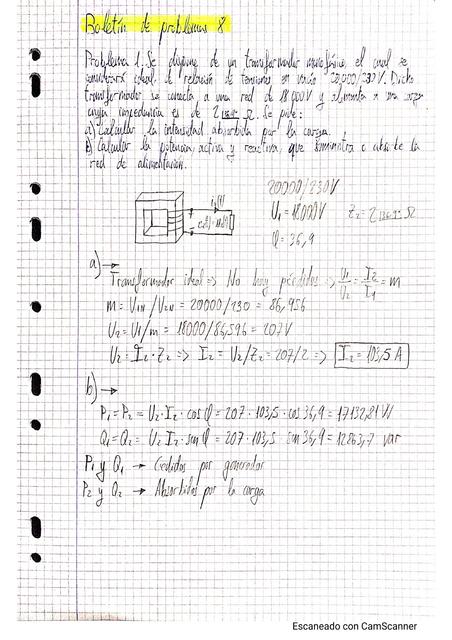 Boletín de problemas 8
Problema 1. Se dispone de un transformador monofásico, el cual se
considerará ideal de relación de tensiones en vacío 20.000/230V. Dicho
transformador se conecta a una red de 18.000V y alimenta a una carga
cuya impedancia es de 2 Ω. Se pide:
a) Calcular la intensidad absorbida por la carga.
b) Calcular la potencia activa y reactiva que suministra o absorbe la
red de alimentación.
20000/230V
U1 = 18000V Z2 = 2 Ω
φ = 36,9
a) →
Transformador ideal => No hay pérdidas => U1/U2 = I2/I1 = m
m = U1N/U2N = 20000/130 = 86,956
U2 = U1/m = 18000/86,596 = 207V
U2 = I2·Z2 => I2 = U2/Z2 = 207/2 => I2 = 103,5 A
b) →
P1 = P2 = U2·I2·cos φ = 207·103,5·cos 36,9 = 17132,81 W
Q1 = Q2 = U2 I2·sin φ = 207·103,5 sin 36,9 = 12863,7 var
P1 y Q1 → Cedidos por generador
P2 y Q2 → Absorbidos por la carga
Escaneado con CamScanner